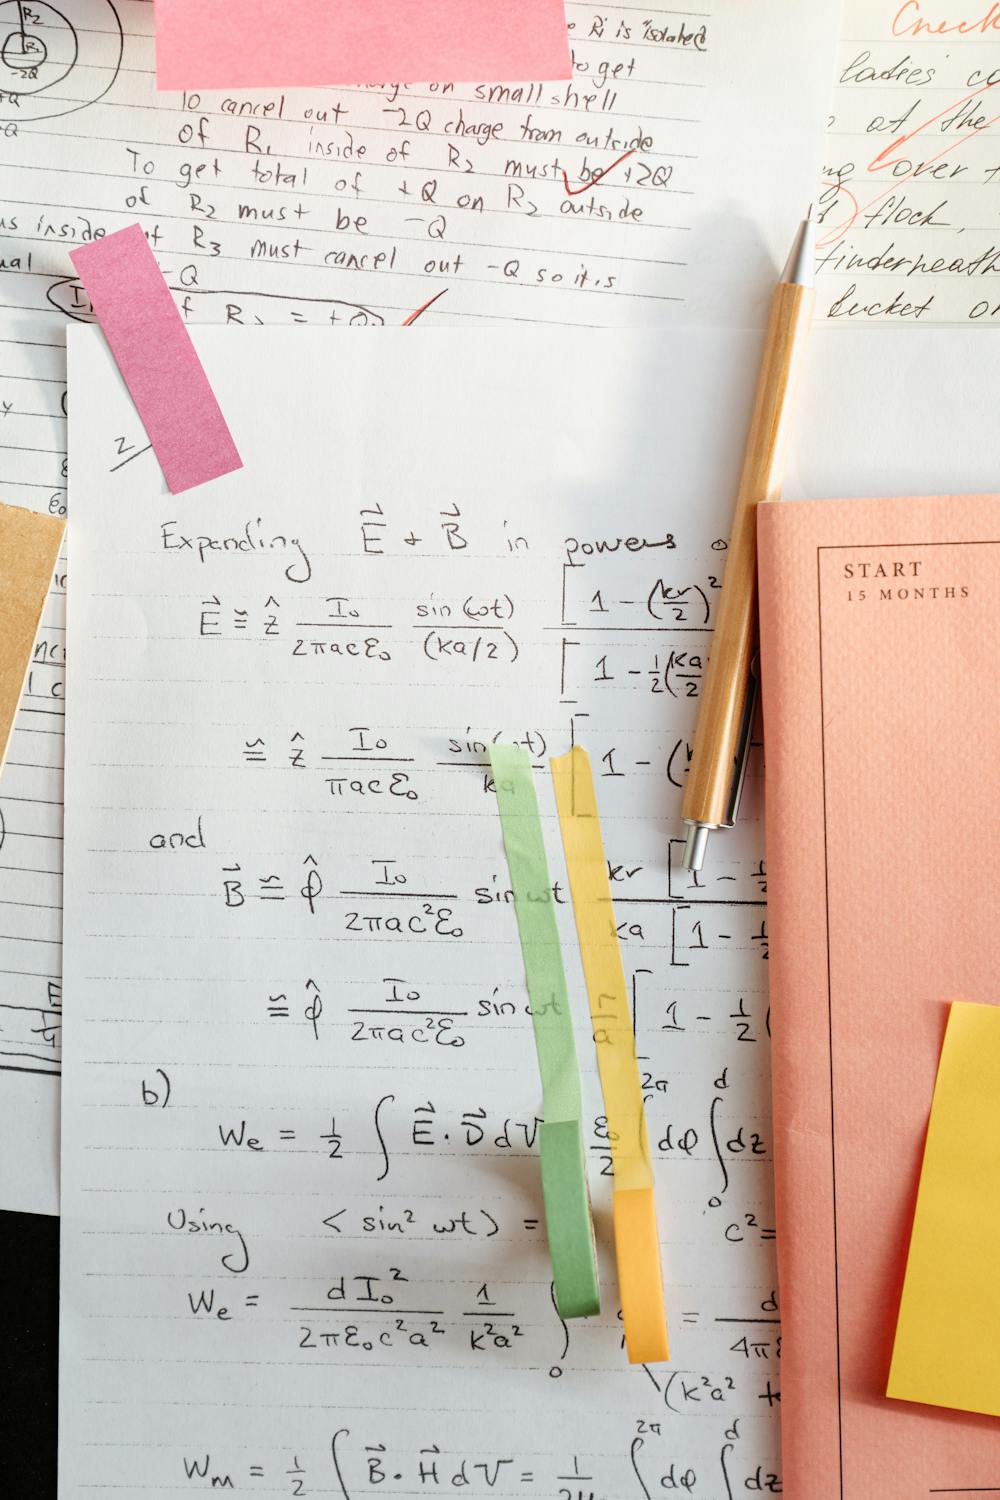 R₂
R₁
-2Q
+Q
-Q
Ri is "isolated
to get
on small shell
To cancel out -2Q charge from outside
of R₁ inside of R₂ must be +2Q
To get total of +Q on R₂ outside
of R₂ must be -Q
inside of R₃ must cancel out -Q so it is
-Q
R₂ = +Q
Check
ladies'
at the
over
flock,
underneath
bucket
2
Expanding E⃗ + B⃗ in powers
E⃗ ≅ ẑ I₀/(2πacε₀) sin(ωt)/(ka/2) [1 - (kr/2)² / [1 - ½(ka/2
≅ ẑ I₀/(πacε₀) sin(ωt)/ka [1 - (
and
B⃗ ≅ φ̂ I₀/(2πac²ε₀) sin ωt kr [1 - ½ / ka [1 - ½
≅ φ̂ I₀/(2πac²ε₀) sin ωt r/a [1 - ½ (
b)
We = ½ ∫ E⃗ · D⃗ dV ε₀/2 ∫ 2π dφ ∫₀ᵈ dz
Using < sin² ωt > = c² =
We = dI₀²/(2πε₀c²a²) 1/(k²a²) ∫₀ = d/4π
(k²a² +
Wm = ½ ∫ B⃗ · H⃗ dV = 1/2μ ∫ 2π dφ ∫ d dz
START
15 MONTHS